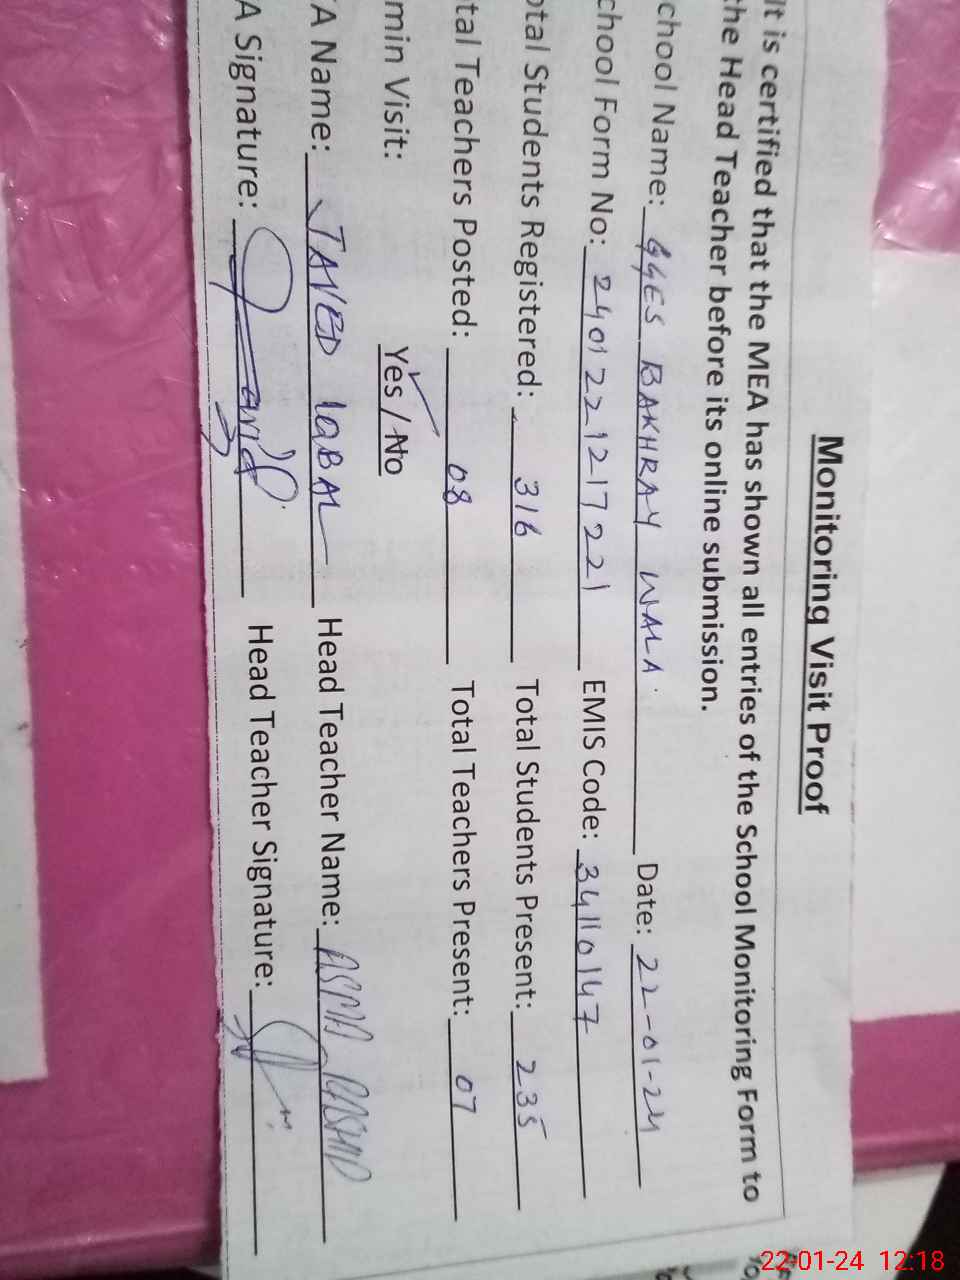 Monitoring Visit Proof
It is certified that the MEA has shown all entries of the School Monitoring Form to
the Head Teacher before its online submission.
chool Name: GGES BAKHRAY WALA. Date: 22-01-24
chool Form No: 2401221217221 EMIS Code: 34110147
otal Students Registered: 316 Total Students Present: 235
tal Teachers Posted: 08 Total Teachers Present: 07
min Visit: Yes / No
A Name: JAVED IQBAL Head Teacher Name: ASMA RASHID
A Signature: Head Teacher Signature:
22-01-24 12:18